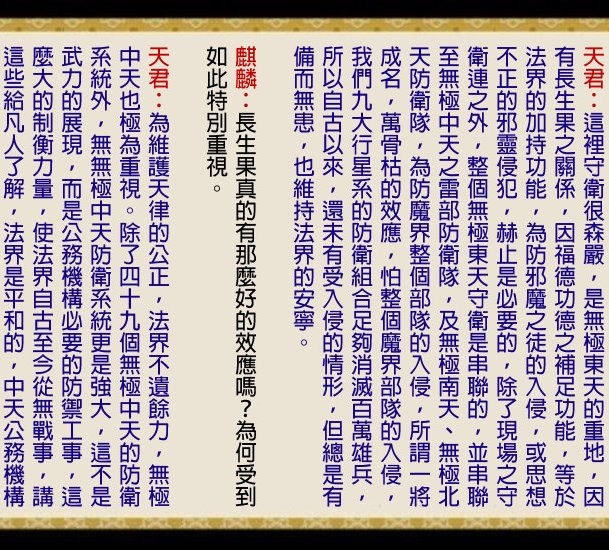 天君：這裡守衛很森嚴，是無極東天的重地，因
有長生果之關係，因福德功德之補足功能，等於
法界的加持功能，為防邪魔之徒的入侵，或思想
不正的邪靈侵犯，赫止是必要的，除了現場之守
衛連之外，整個無極東天守衛是串聯的，並串聯
至無極中天之雷部防衛隊，及無極南天、無極北
天防衛隊，為防魔界整個部隊的入侵，所謂一將
成名，萬骨枯的效應，怕整個魔界部隊的入侵，
我們九大行星系的防衛組合足夠消滅百萬雄兵，
所以自古以來，還未有受入侵的情形，但總是有
備而無患，也維持法界的安寧。
麒麟：長生果真的有那麼好的效應嗎？為何受到
如此特別重視。
天君：為維護天律的公正，法界不遺餘力，無極
中天也極為重視。除了四十九個無極中天的防衛
系統外，無無極中天防衛系統更是強大，這不是
武力的展現，而是公務機構必要的防禦工事，這
麼大的制衡力量，使法界自古至今從無戰事，講
這些給凡人了解，法界是平和的，中天公務機構